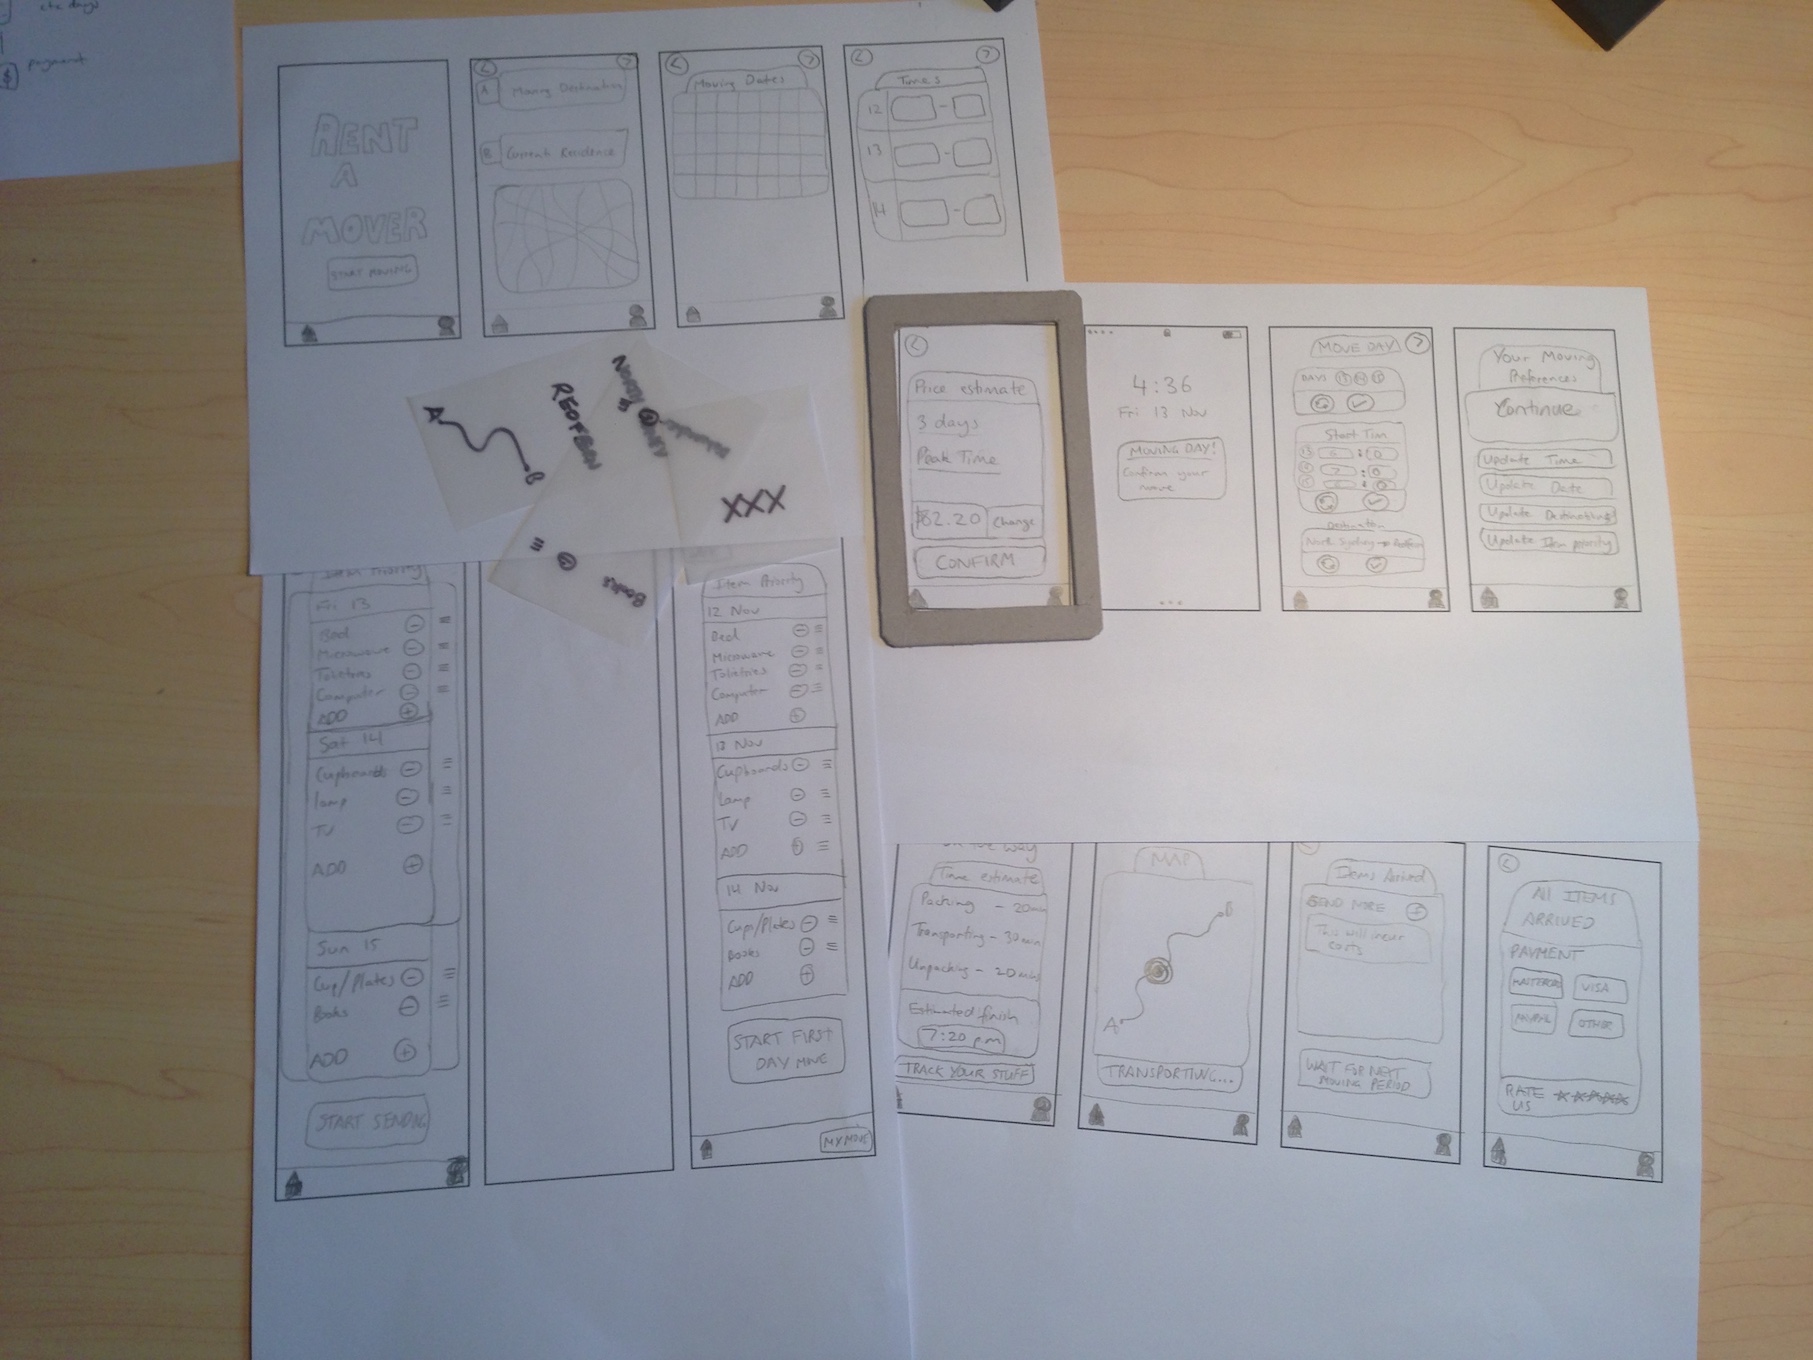 etc days
payment
$
RENT
A
MOVER
START MOVING
A Moving Destination
B Current Residence
Moving Dates
Times
12 -
13 -
14 -
A
B
REDFERN
NORTH
XXX
Books
Price estimate
3 days
Peak Time
$82.20 Change
CONFIRM
4:36
Fri 13 Nov
MOVING DAY!
Confirm your
move
MOVE DAY
DAYS 13 14 15
Start Tim
13 6 : 0
14 7 : 0
15 : 0
Destination
North Sydney → Redfern
Your Moving
Preferences
Continue
Update Time
Update Date
Update Destinations
Update Item priority
Item Priority
Fri 13
Bed
Microwave
Toiletries
Computer
ADD
Sat 14
Cupboards
lamp
TV
ADD
Sun 15
Cup/Plates
Books
ADD
START SENDIG
Item Priority
12 Nov
Bed
Microwave
Toiletries
Computer
ADD
13 Nov
Cupboards
Lamp
TV
ADD
14 Nov
Cup/Plates
Books
ADD
START FIRST
DAY MOVE
MY MOVE
ON THE WAY
Time estimate
Packing - 20min
Transporting - 30min
Unpacking - 20mins
Estimated finish
7:20 pm
TRACK YOUR STUFF
MAP
B
A
TRANSPORTING...
Items Arrived
SEND MORE +
This will incur
costs
WAIT FOR NEXT
MOVING PERIOD
All ITEMS
ARRIVED
PAYMENT
VISA
PAYPAL OTHER
RATE
US